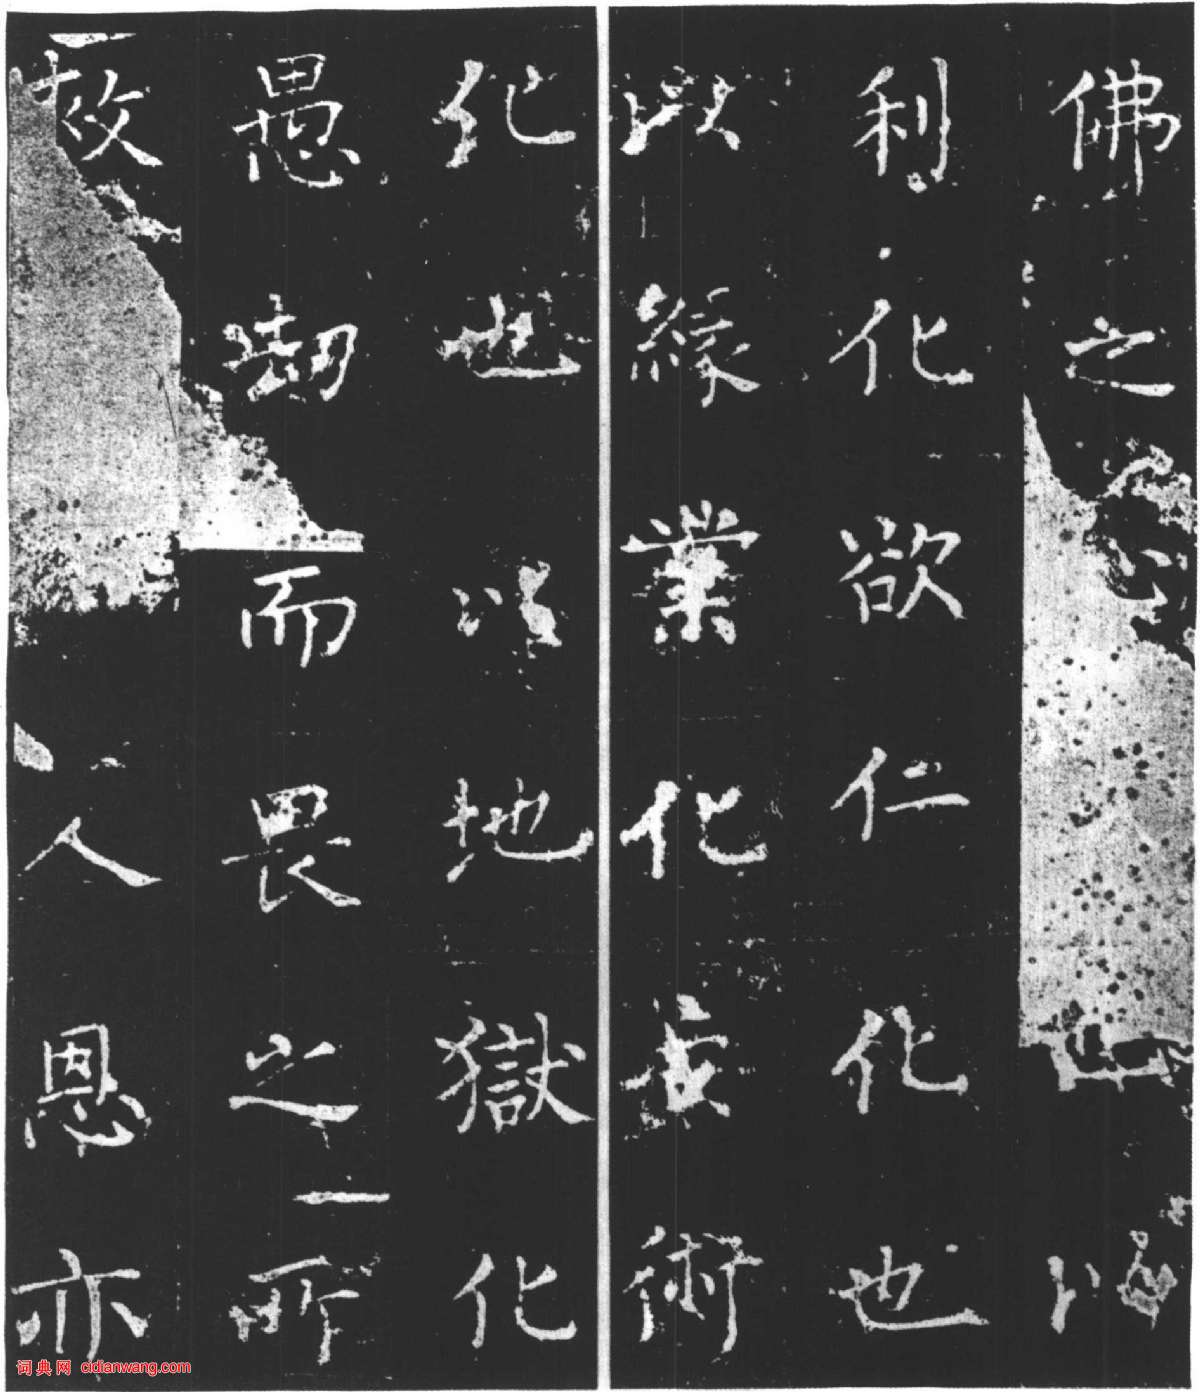 佛之心以
利化欲仁化也
以緣業化妄術
化也以地獄化
愚劫而畏之所
故人恩亦
词典网 cidianwang.com